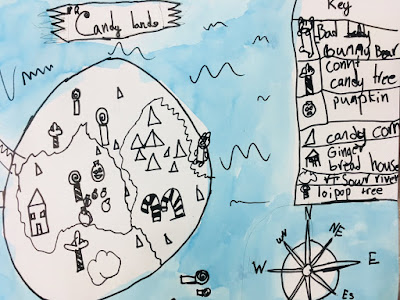 Candy lands
Key
Bad teddy
Gummy Bear
candy tree
pumpkin
candy corn
Ginger
bread house
Sour river
lolipop tree
N
NE
E
Es
W